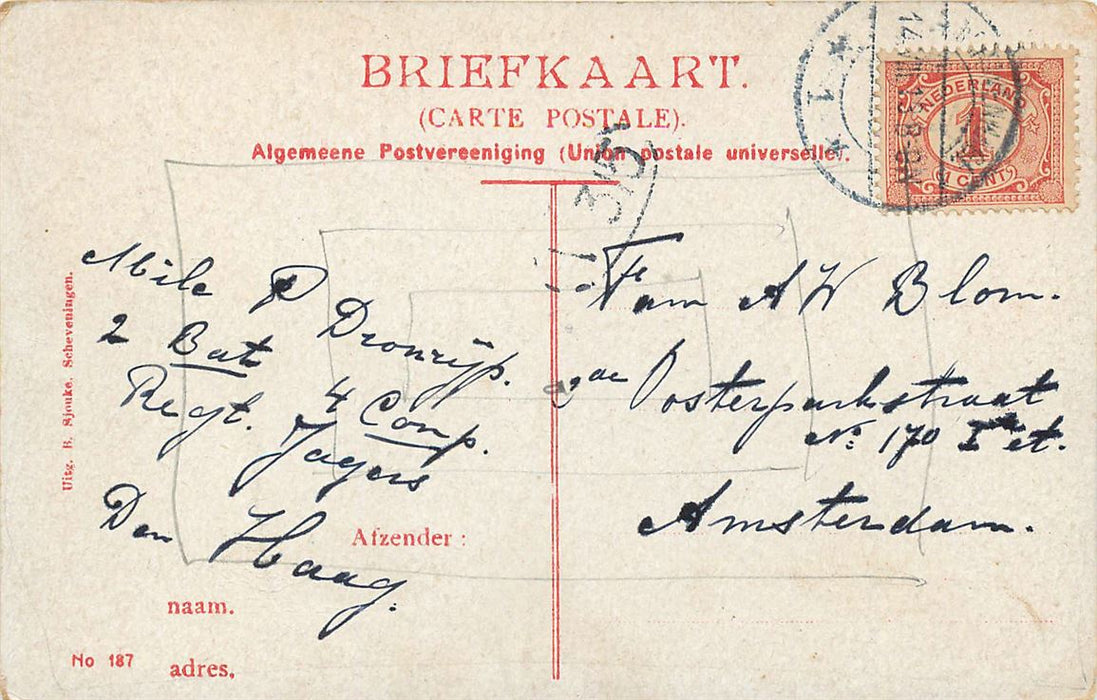 BRIEFKAART.
(CARTE POSTALE).
Algemeene Postvereeniging (Union postale universelle).
NEDERLAND
1
1 CENT
315
Uitg. B. Sjouke. Scheveningen.
Mile P Dronrijp.
2 Bat 4 Comp.
Regt. Jagers
Den Haag.
Afzender :
naam.
adres.
No 187
Fam A W Blom.
3de Oosterparkstraat
No. 170 I et.
Amsterdam.